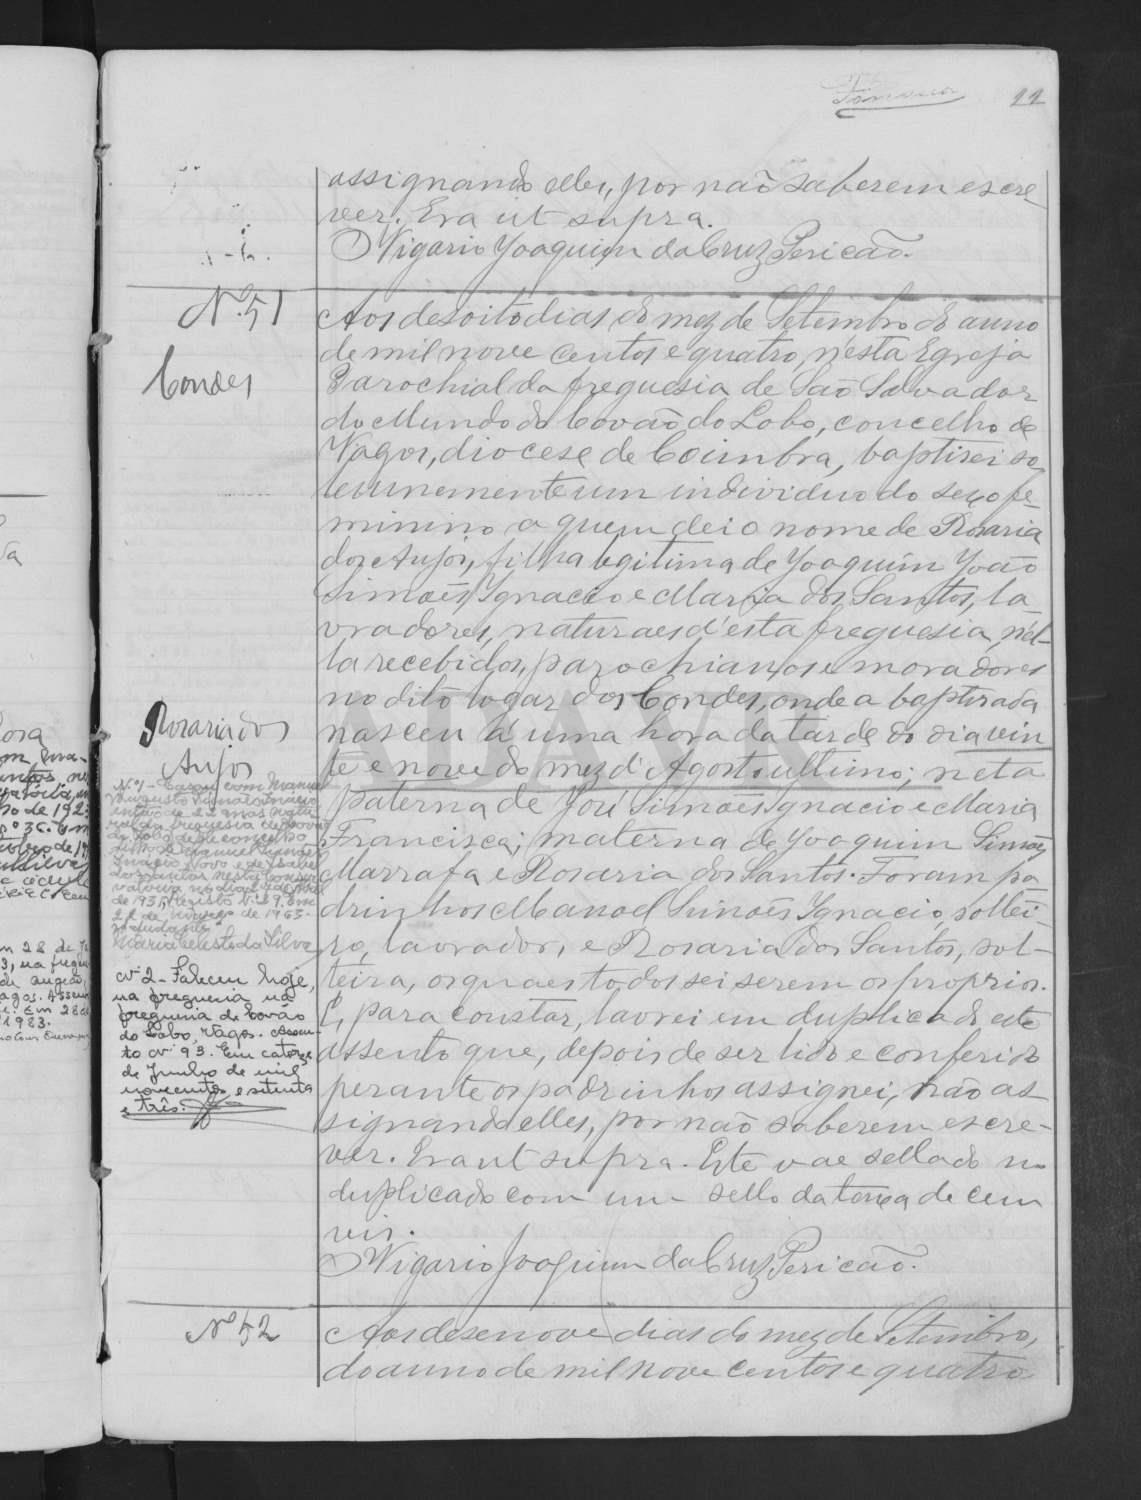 22
assignando elles, por não saberem escre
ver. Era ut supra.
O Vigario Joaquim da Cruz Pericão.
Nº 51
Condes
Rosaria dos
Anjos
Aos desoito dias do mez de Setembro do anno
de mil nove centos e quatro, n'esta Egreja
Parochial da freguesia de São Salvador
do Mundo do Covão do Lobo, concelho de
Vagos, diocese de Coimbra, baptisei so
lemnemente um individuo do sexo fe-
minino a quem dei o nome de Rosaria
dos Anjos, filha legitima de Joaquim João
Simões Ignacio e Maria dos Santos, la-
vradores, naturaes d'esta freguesia, n'el-
la recebidos, parochianos e moradores
no dito logar dos Condes, onde a baptisada
nasceu á uma hora da tarde do dia vin
te e nove do mez d'Agosto ultimo; neta
paterna de José Simões Ignacio e Maria
Francisca; materna de Joaquim Simões
Marrafa e Rosaria dos Santos. Foram pa
drinhos Manoel Simões Ignacio, soltei-
ro, lavrador, e Rosaria dos Santos, sol-
teira, os quaes todos sei serem os proprios.
E, para constar, lavrei em duplicado este
assento que, depois de ser lido e conferido
perante os padrinhos assignei, não as
signando elles, por não saberem escre-
ver. Era ut supra. Este vae sellado no
duplicado com um sello da taxa de cem
reis.
O Vigario Joaquim da Cruz Pericão.
Nº 1 - Casou com Manuel
Augusto
de 22 anos
freguesia
concelho
e de Isabel
dos Santos
no dia
de 1931, registo Nº
22 de de 1963.
O ajudante
Maria Celeste da Silva
Nº 2 - Faleceu hoje,
na freguesia na
freguesia de Covão
do Lobo, Vagos. Assen-
to Nº 93. Em catorze
de Junho de mil
novecentos e setenta
e três.
Nº 52
Aos desenove dias do mez de Setembro,
do anno de mil nove centos e quatro
ADAVR